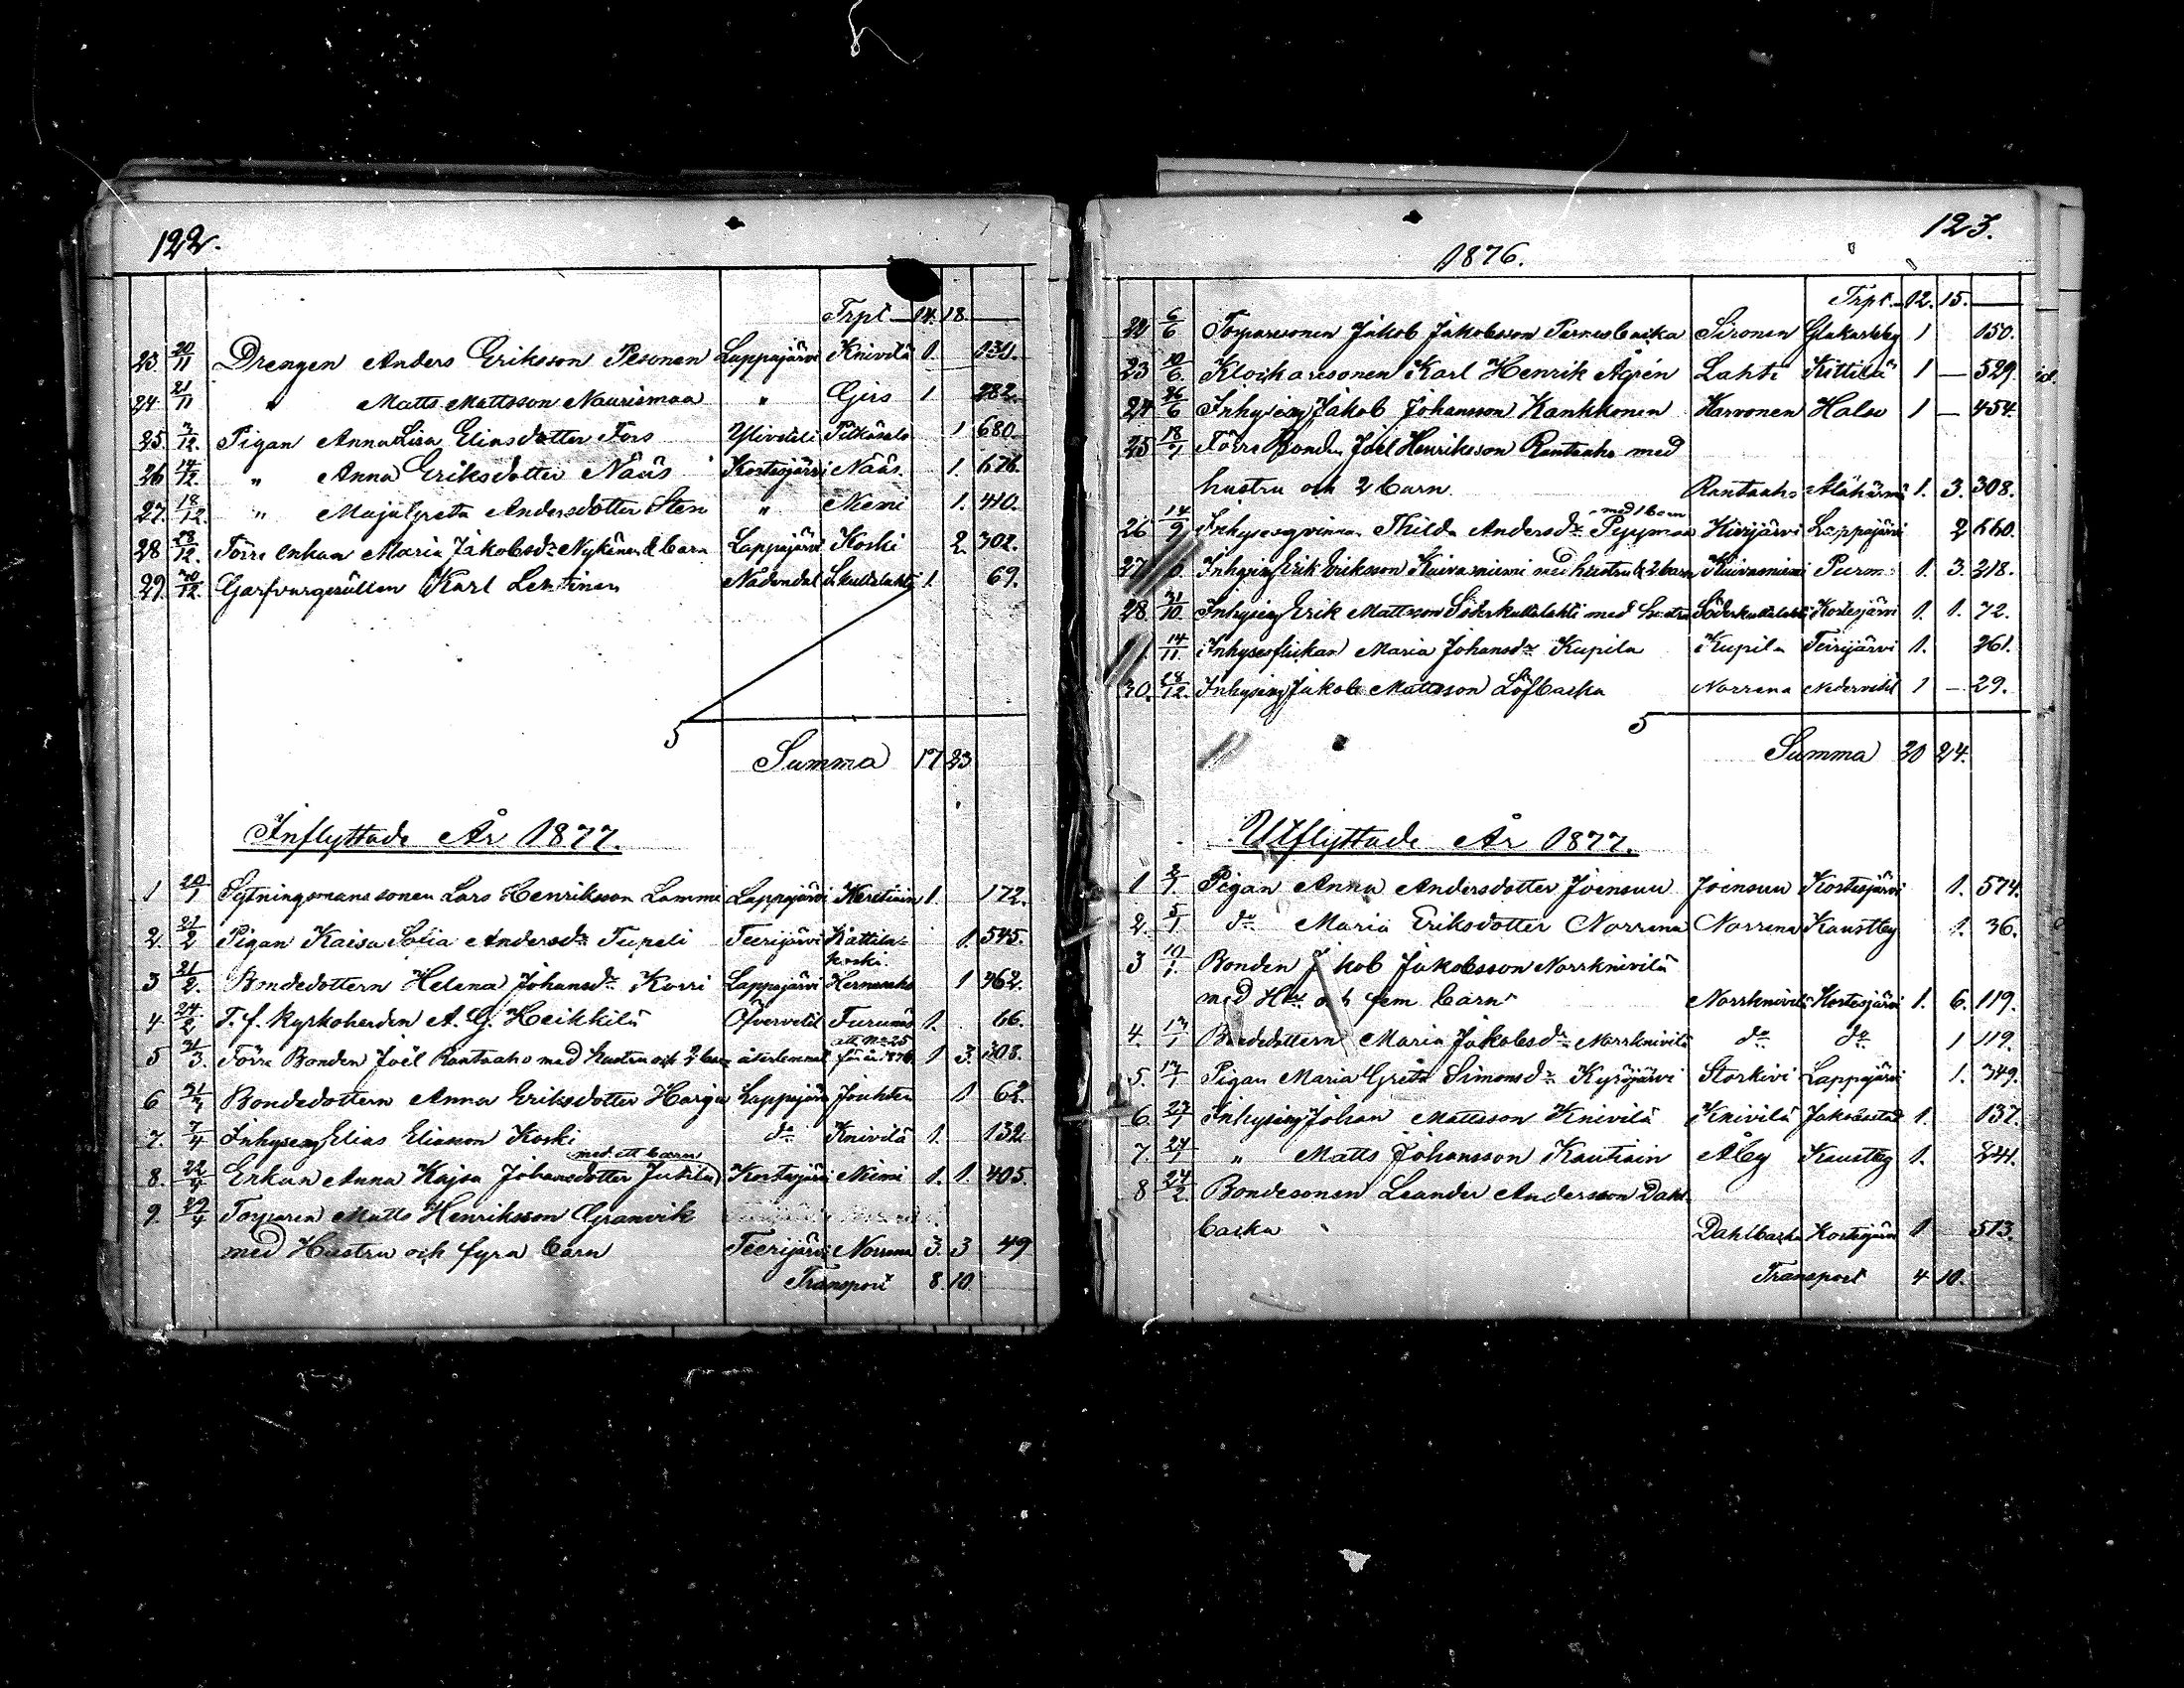 122.
Trpt 14. 18.
23. 20/11 Drengen Anders Eriksson Pesonen Lappajärvi Knivilä 1. 130.
24. 21/11 " Matts Mattsson Naurismaa " Girs 1 282.
25. 3/12. Pigan Anna Lisa Eliasdotter Fors Ylivetili Pitkäsalo 1 680.
26 14/12. " Anna Eriksdotter Nääs Kortesjärvi Nääs. 1. 676.
27. 18/12. " Maja Greta Andersdotter Sten " Niemi 1. 410.
28 28/12. Förre enkan Maria Jakobsdr Nykänen & barn Lappajärvi Koski 2. 302.
29. 30/12. Garfvaregesällen Karl Lentinen Nådendal Skullalahti 1. 69.
5
Summa 17 23
Inflyttade År 1877.
1 20/1 Sytningsmanssonen Lars Henriksson Lammi Lappajärvi Keretiain 1. 172.
2. 21/2 Pigan Kaisa Sofia Andersdr Tupeli Teerijärvi Kattila= 1. 545.
koski
3 21/2. Bondedottern Helena Johansdr Korri Lappajärvi Hernesaho 1 462.
4 24/2 T. f. Kyrkoherden A. G. Heikkilä Öfvervetil Furunäs 1. 66.
att No 25
5 31/3. Förre Bonden Joël Rantaaho med hustru och 2 barn återlemnat för år 1876 1 3. 308.
6 31/3 Bondedottern Anna Eriksdotter Harju Lappajärvi Jouhten 1 62.
7. 7/4 Inhysing Elias Eliasson Koski do Knivilä 1. 132
med ett barn
8. 22/4 Enkan Anna Kajsa Johansdotter Jutila Kortesjärvi Niemi 1. 1. 405.
9. 29/4 Torparen Matts Henriksson Granvik
med Hustru och fyra barn Teerijärvi Norrena 3. 3 49
Transport 8. 10.
123.
1876.
Trpt. 12. 15.
22 6/6 Torparesonen Jakob Jakobsson Pernesbacka Sironen Gfakarleby 1 150.
23 10/6. Klockaresonen Karl Henrik Ågrén Lahti Kittilä 1 — 529.
24 26/6 Inhysing Jakob Johansson Kankkonen Karvonen Halso 1 — 454.
25 18/9 Förre Bonden Joel Henriksson Rantaaho med
hustru och 2 barn. Rantaaho Alahärmä 1. 3. 308.
med 1 barn
26 14/9 Inhysesqvinnan Thilda Andersdr Pyymaa Hirvijärvi Lappajärvi 2 660.
27 Inhysing Erik Eriksson Kuivasniemi med hustru & 2 barn Kuivasniemi Purmo 1. 3. 218.
28. 31/10. Inhysing Erik Mattsson Söderkultalahti med hustru Söderkultalahti Kortesjärvi 1. 1. 72.
14/11. Inhysesflickan Maria Johansdr Kupila Kupila Teirijärvi 1. 261.
30. 28/12. Inhysing Jakob Mattsson Löfbacka Norrena Nedervetil 1 — 29.
5
Summa 20 24.
Utflyttade År 1877.
1 2/1. Pigan Anna Andersdotter Joensuu Joensuu Kortesjärvi 1. 574.
2. 5/1 do Maria Eriksdotter Norrena Norrena Kaustby 1. 36.
3 10/1. Bonden Jakob Jakobsson Norrknivilä
med Hu och fem barn Norrknivilä Kortesjärvi 1. 6. 119.
4. 13/1 Bondedottern Maria Jakobsdr Norrknivilä do do 1 119.
5. 17/1 Pigan Maria Greta Simonsdr Kyröjärvi Storkivi Lappajärvi 1. 349.
6. 27/1 Inhysing Johan Mattsson Knivilä Knivilä Jakobstad 1. 137.
7. 27/1 " Matts Johansson Kautiain Åby Kaustby 1. 244.
8 24/2. Bondesonen Leander Andersson Dahl
backa Dahlbacka Kortesjärvi 1 513.
Transport 4 10.